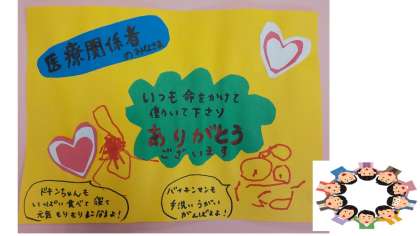 医療関係者
のみなさま
いつも 命をかけて
働いて下さり
ありがとう
ございます
ドキンちゃんも
いっぱい食べて寝て
元気もりもりになぁよ!
バイキンマンも
手洗いうがい
がんばるよ!